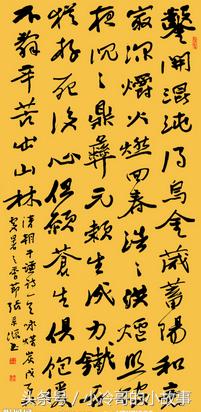 鑿開混沌得烏金藏蓄陽和意
最深爝火燃回春浩浩洪爐照破
夜沉沉鼎彝元賴生成力鐵石
猶存死後心但願蒼生俱飽暖
不辭辛苦出山林
于謙詩一首
头条号/小冷哥的小故事